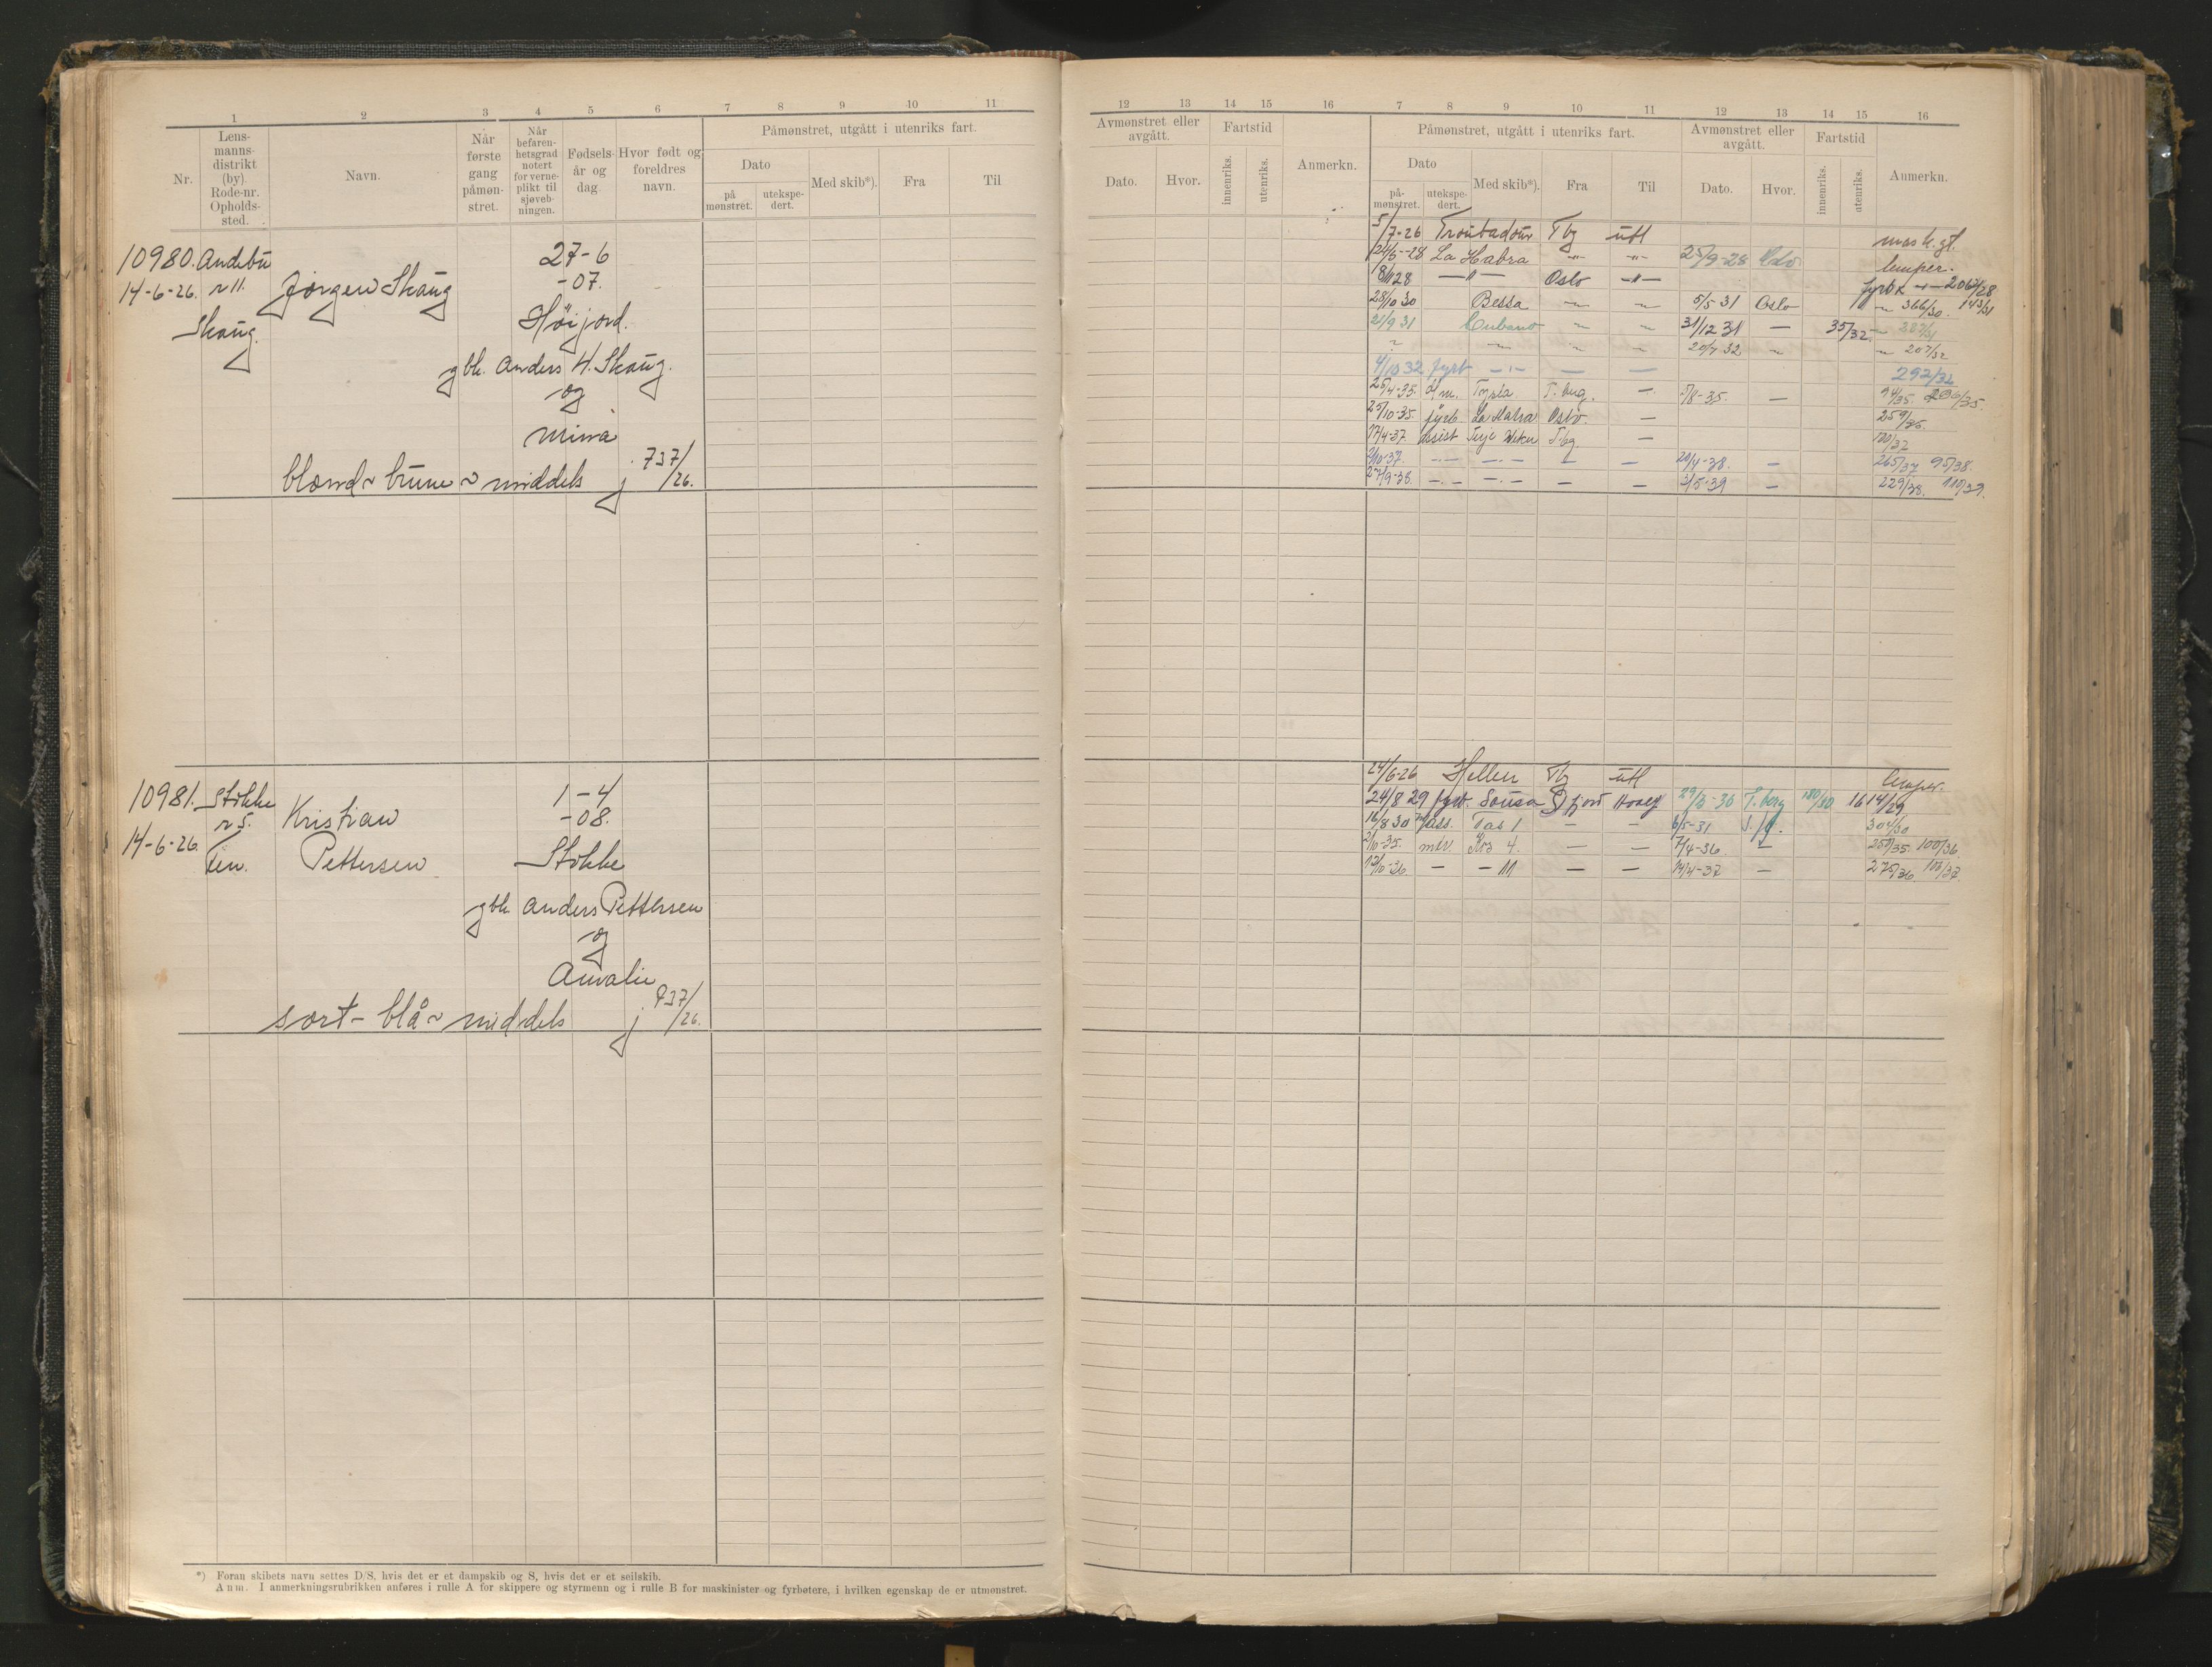 1 2 3 4 5 6 7 8 9 10 11
Nr. Lens-manns-distrikt (by). Rode-nr. Opholds-sted. Navn. Når første gang påmøn-stret. Når befaren-hetsgrad notert for verne-plikt til sjøveb-ningen. Fødsels-år og dag. Hvor født og foreldres navn. Påmønstret, utgått i utenriks fart.
Dato Med skib*). Fra Til
på mønstret. utekspe-dert.
10980. Andebu 27-6
14-6-26. r 11. Jørgen Skaug -07.
Skaug. Høijord.
gbr. Anders H. Skaug.
og
Mina
blond ~ brune ~ middels j 737/26.
10981. Stokke 1-4
r 5. Kristian -08.
14-6-26. Pettersen Stokke
gbr. Anders Pettersen
og
Amalie
sort - blå ~ middels j 737/26.
*) Foran skibets navn settes D/S, hvis det er et dampskib og S, hvis det er et seilskib.
Anm. I anmerkningsrubrikken anføres i rulle A for skippere og styrmenn og i rulle B for maskinister og fyrbøtere, i hvilken egenskap de er utmønstret.
12 13 14 15 16 7 8 9 10 11 12 13 14 15 16
Avmønstret eller avgått. Fartstid Anmerkn. Påmønstret, utgått i utenriks fart. Avmønstret eller avgått. Fartstid Anmerkn.
Dato. Hvor. innenriks. utenriks. Dato Med skib*). Fra Til Dato. Hvor. innenriks. utenriks.
på-mønstret. utekspe-dert.
5/7-26 Troubadour Tbg utl mask.gt.
24/5-28 La Habra -"- -"- 25/9-28 Oslo lemper.
8/11 28 -"- Oslo -"- fyrb.
28/10 30 Bessa ~ ~ 5/5 31 Oslo ~ 366/30. 143/31
21/9 31 Cubano ~ ~ 31/12 31 — 35/32 ~ 287/31
~ ~ ~ ~ 20/7 32 ~ ~ 207/32
4/10 32 fyrb -"- — — 292/32
25/4-35. — 5/8-35. — 94/35.
25/10-35. fyrb La Habra Oslo. — 259/35.
17/4-37 assist Terje Viken Tbg. — 100/37
2/10-37. -"- -"- — — 20/4-38. — 265/37 95/38.
27/9-38. -"- -"- — — 3/5-39 — 229/38. 110/39.
24/6-26 Tbg utl lemper.
24/8 29 fyrb. Sousa Sfjord 29/3-30 T.berg 180/30 1614/29
16/8 30 — — 6/5-31 304/30
2/10-35. — — 7/4-36 — 250/35. 100/36.
12/10-36. — - 11 — — 14/4-37 — 275/36 103/37.